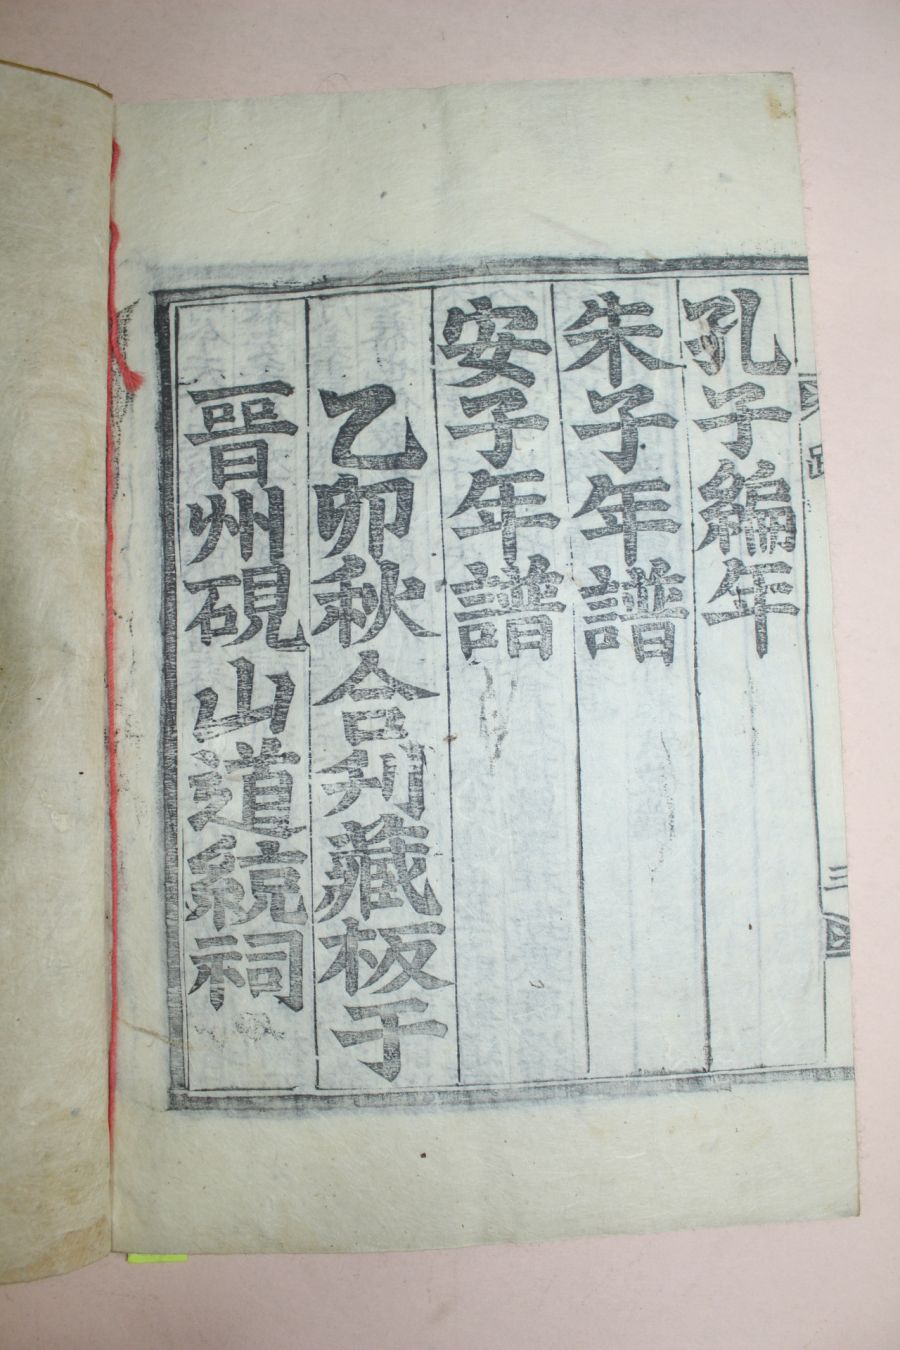 孔子編年
朱子年譜
安子年譜
乙卯秋合刊藏板于
晉州硯山道統祠
跋
三